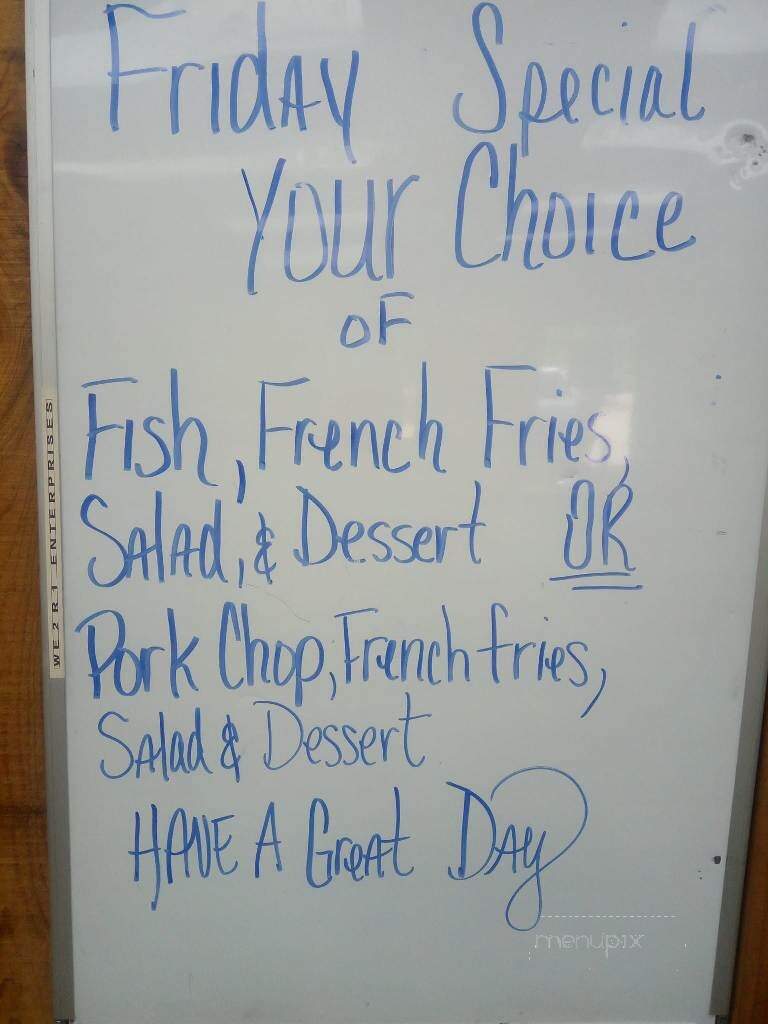 Friday Special
Your Choice
OF
Fish, French Fries,
Salad, & Dessert OR
Pork Chop, French fries,
Salad & Dessert
HAVE A Great Day
WE2R1 ENTERPRISES
menupix